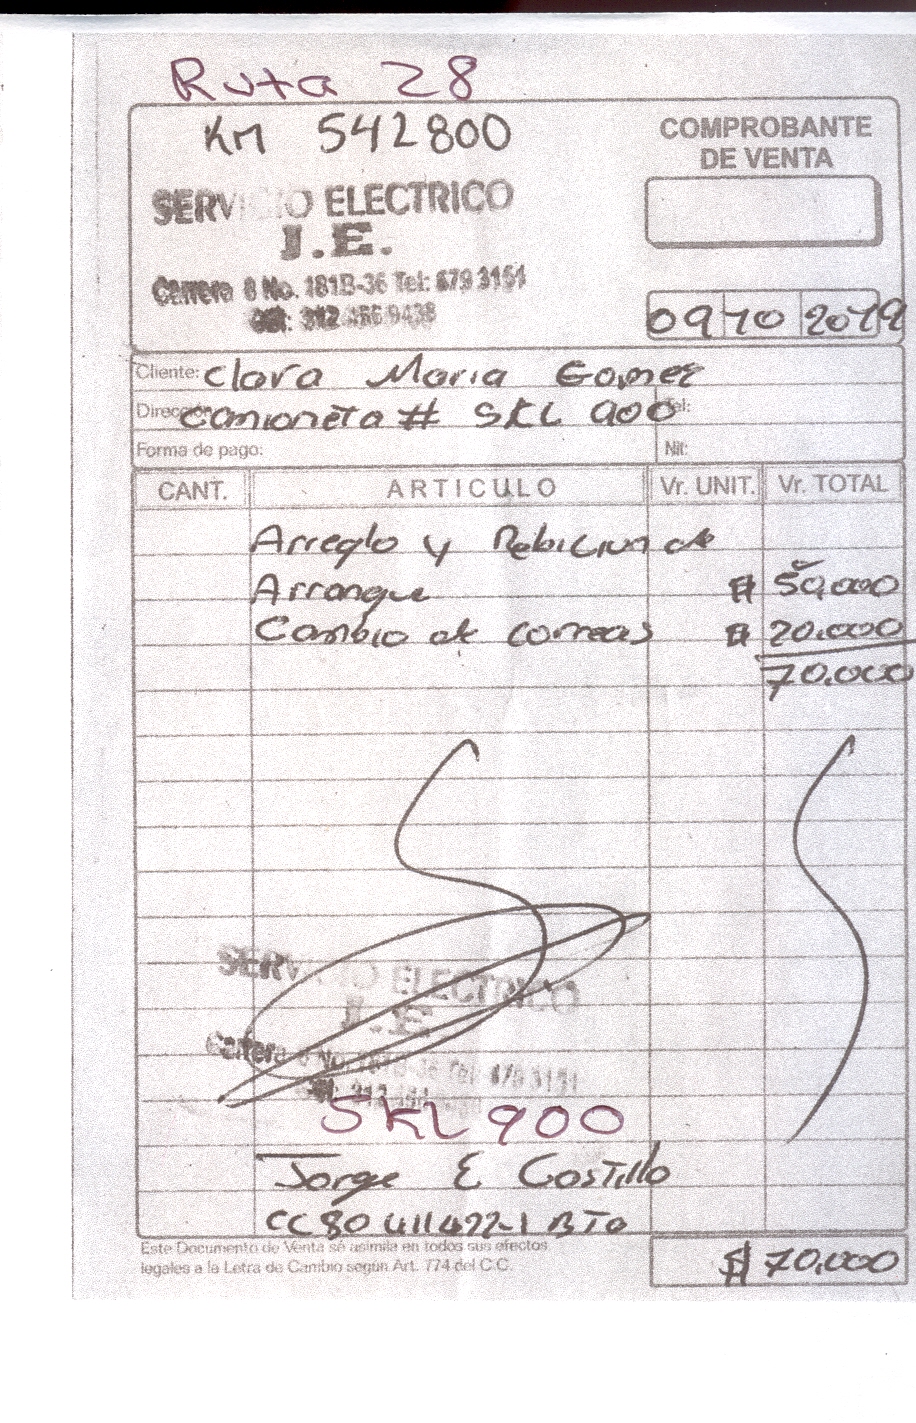 Ruta 28
KM 542800
COMPROBANTE
DE VENTA
SERVICIO ELECTRICO
J.E.
Carrera 8 No. 181B-36 Tel: 679 3151
Cel: 312 456 9438
09 10 2012
Cliente: Clara Maria Gomez
Dirección: Camioneta # SKL 900 Tel:
Forma de pago: Nit:
CANT. ARTICULO Vr. UNIT. Vr. TOTAL
Arreglo y Rebiciun de
Arranque # 50,000
Cambio de correas # 20.000
70.000
SERVICIO ELECTRICO
J.E.
Carrera 8 No. 181B-36 Tel: 679 3151
SKL 900
Jorge E Costillo
BTa
Este Documento de Venta se asimila en todos sus efectos
legales a la Letra de Cambio según Art. 774 del C.C.
$ 70,000